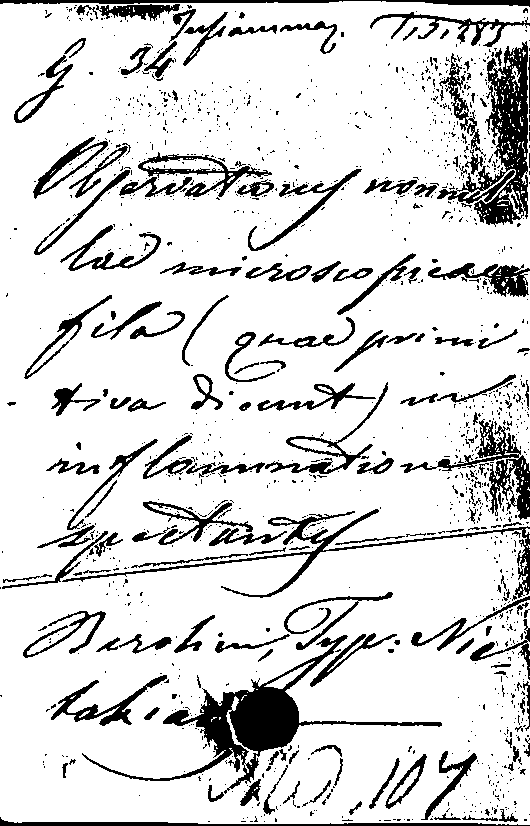 Inflammaz.
G. 34
Observationes nonnul-
lae microscopicae
fila (quae primi-
tiva dicunt) in
inflammatione
spectantes
Berolini, Typ: Nie-
takia
Med. 107